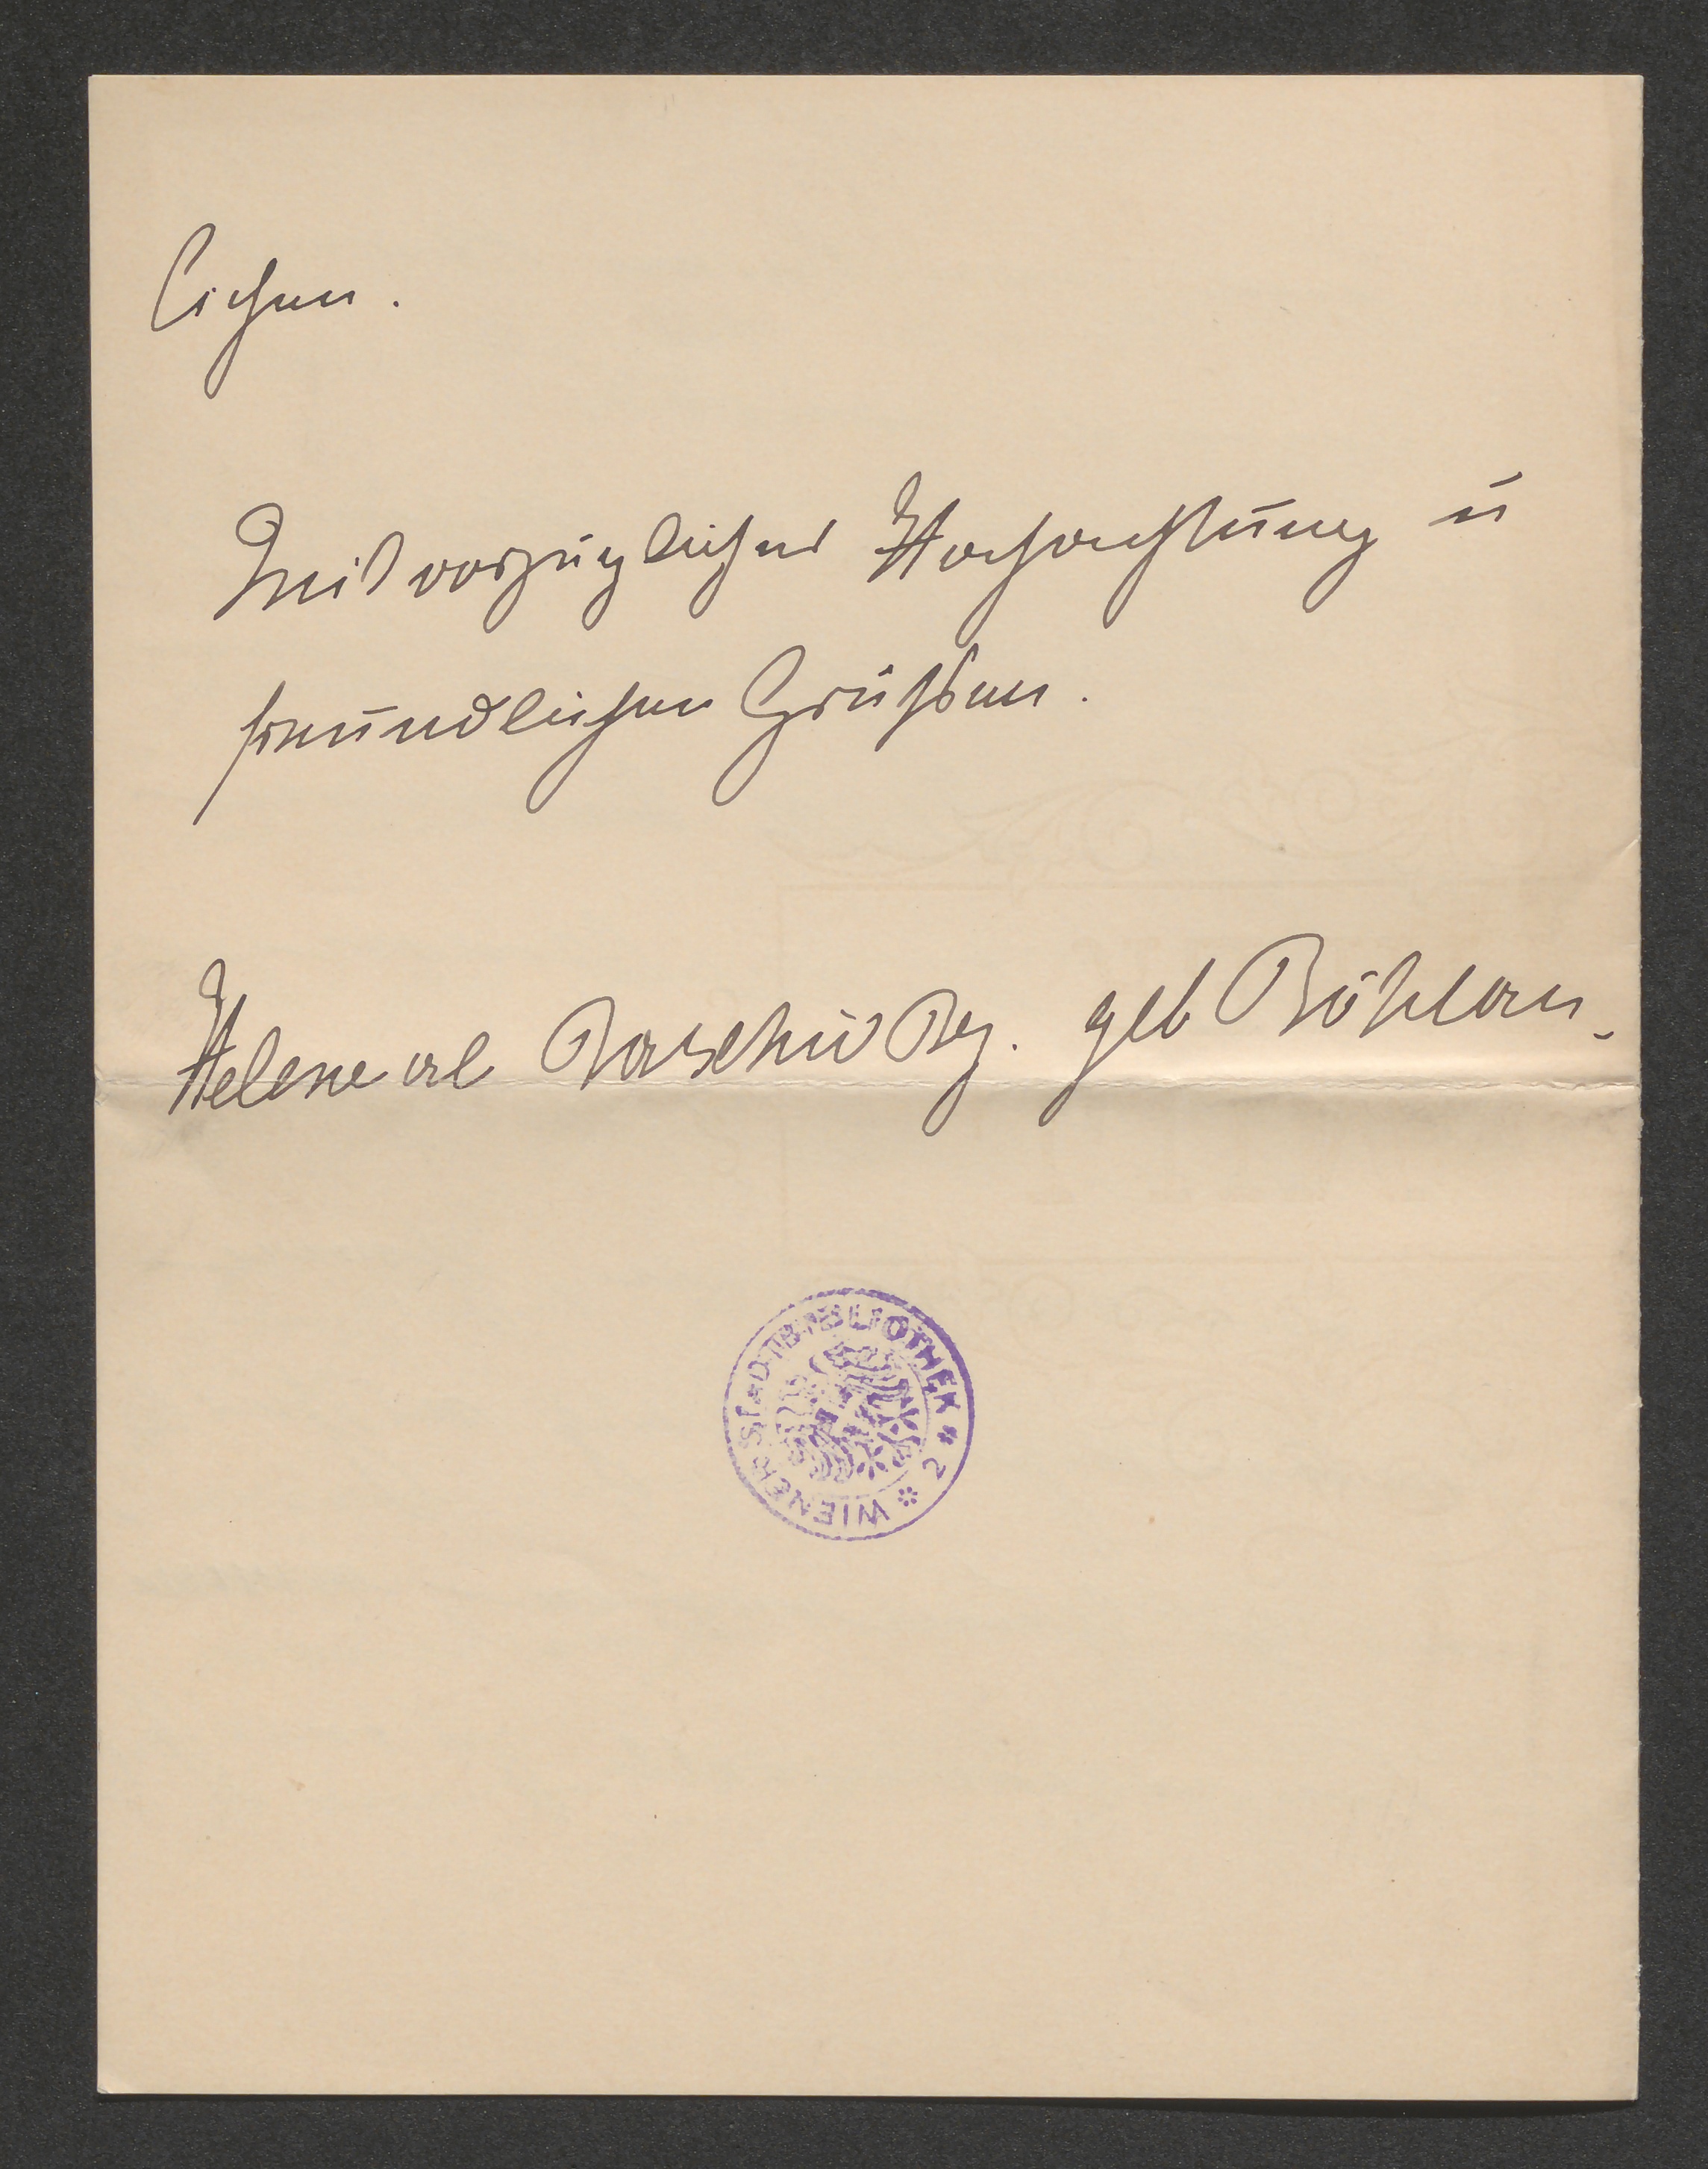 lichen.
Mit vorzüglicher Hochachtung u
freundlichen Grüßen.
Helene al Raschid Bey. geb Böhlau.
WIENER STADTBIBLIOTHEK * 2 *